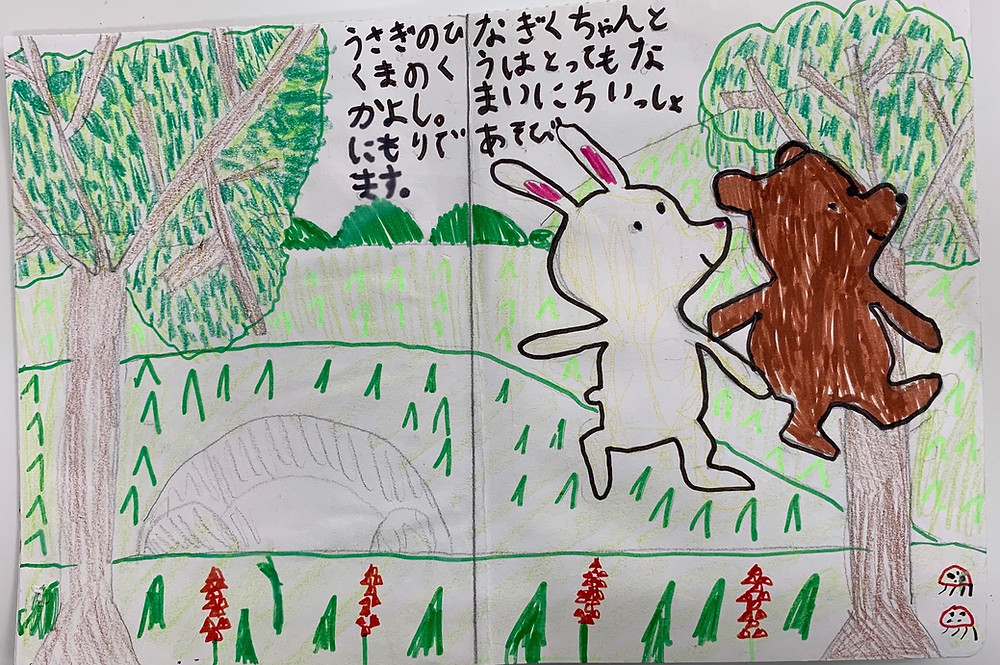 うさぎのひなぎくちゃんと
くまのくうはとってもな
かよし。まいにちいっしょ
にもりであそび
ます。